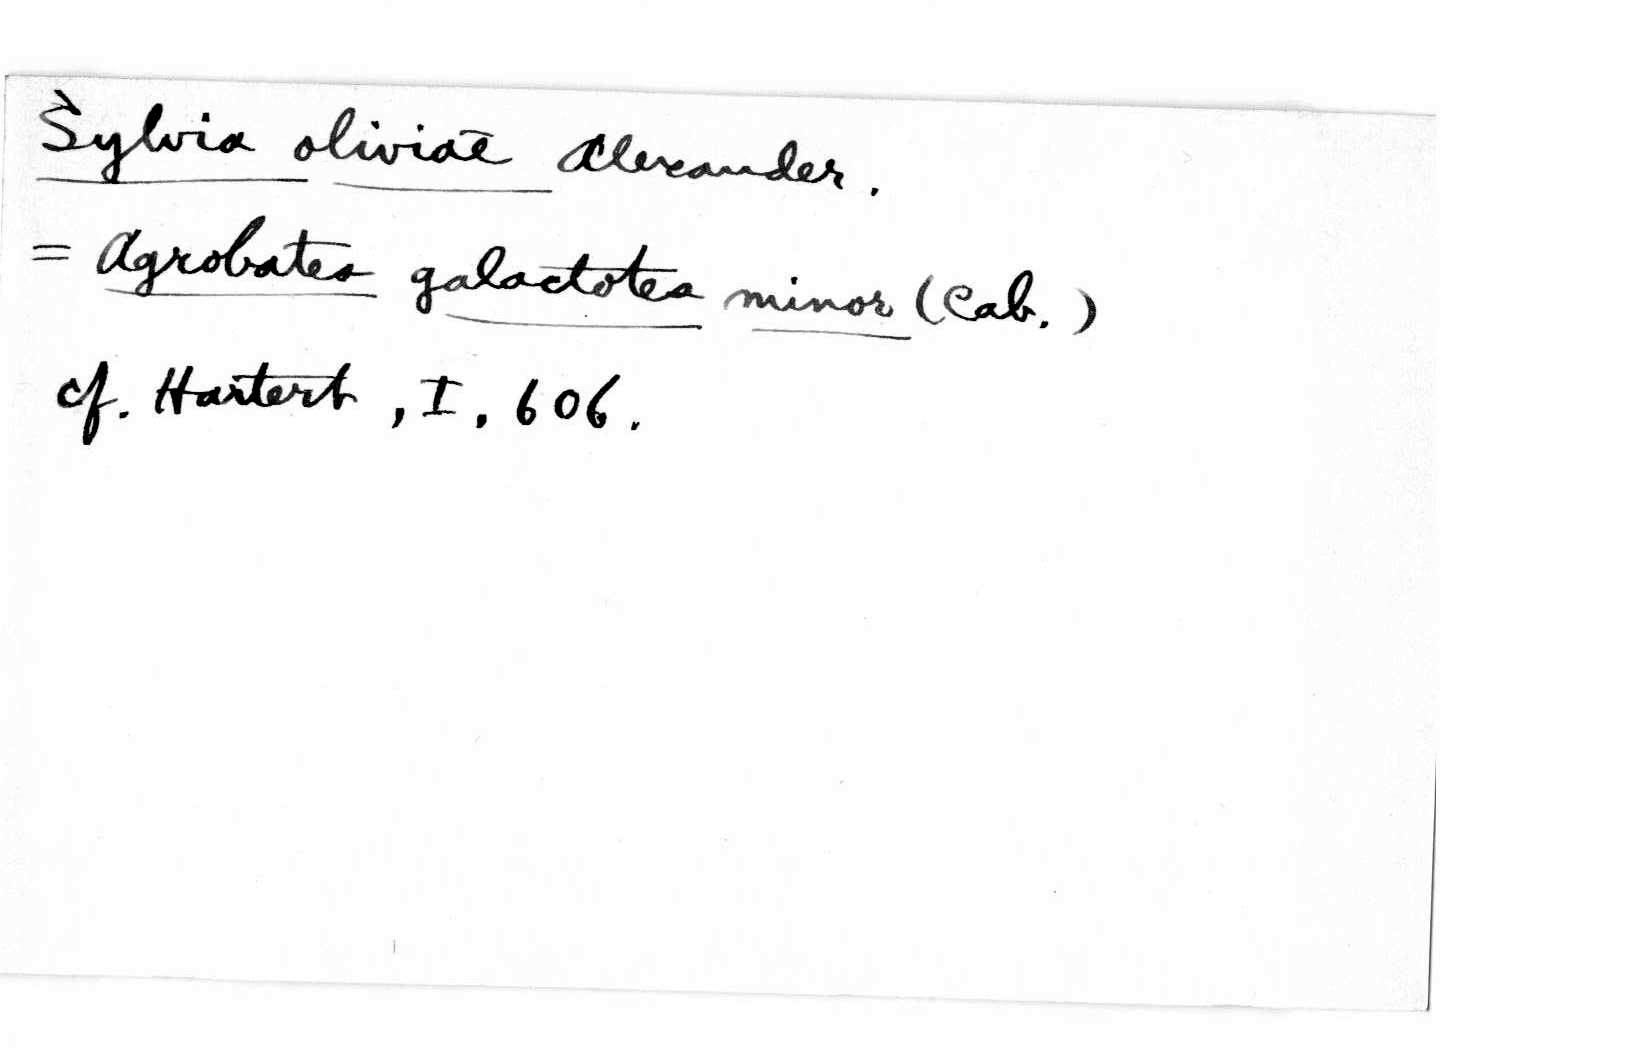 Sylvia oliviae Alexander.
= Agrobates galactotes minor (Cab.)
cf. Hartert, I, 606.